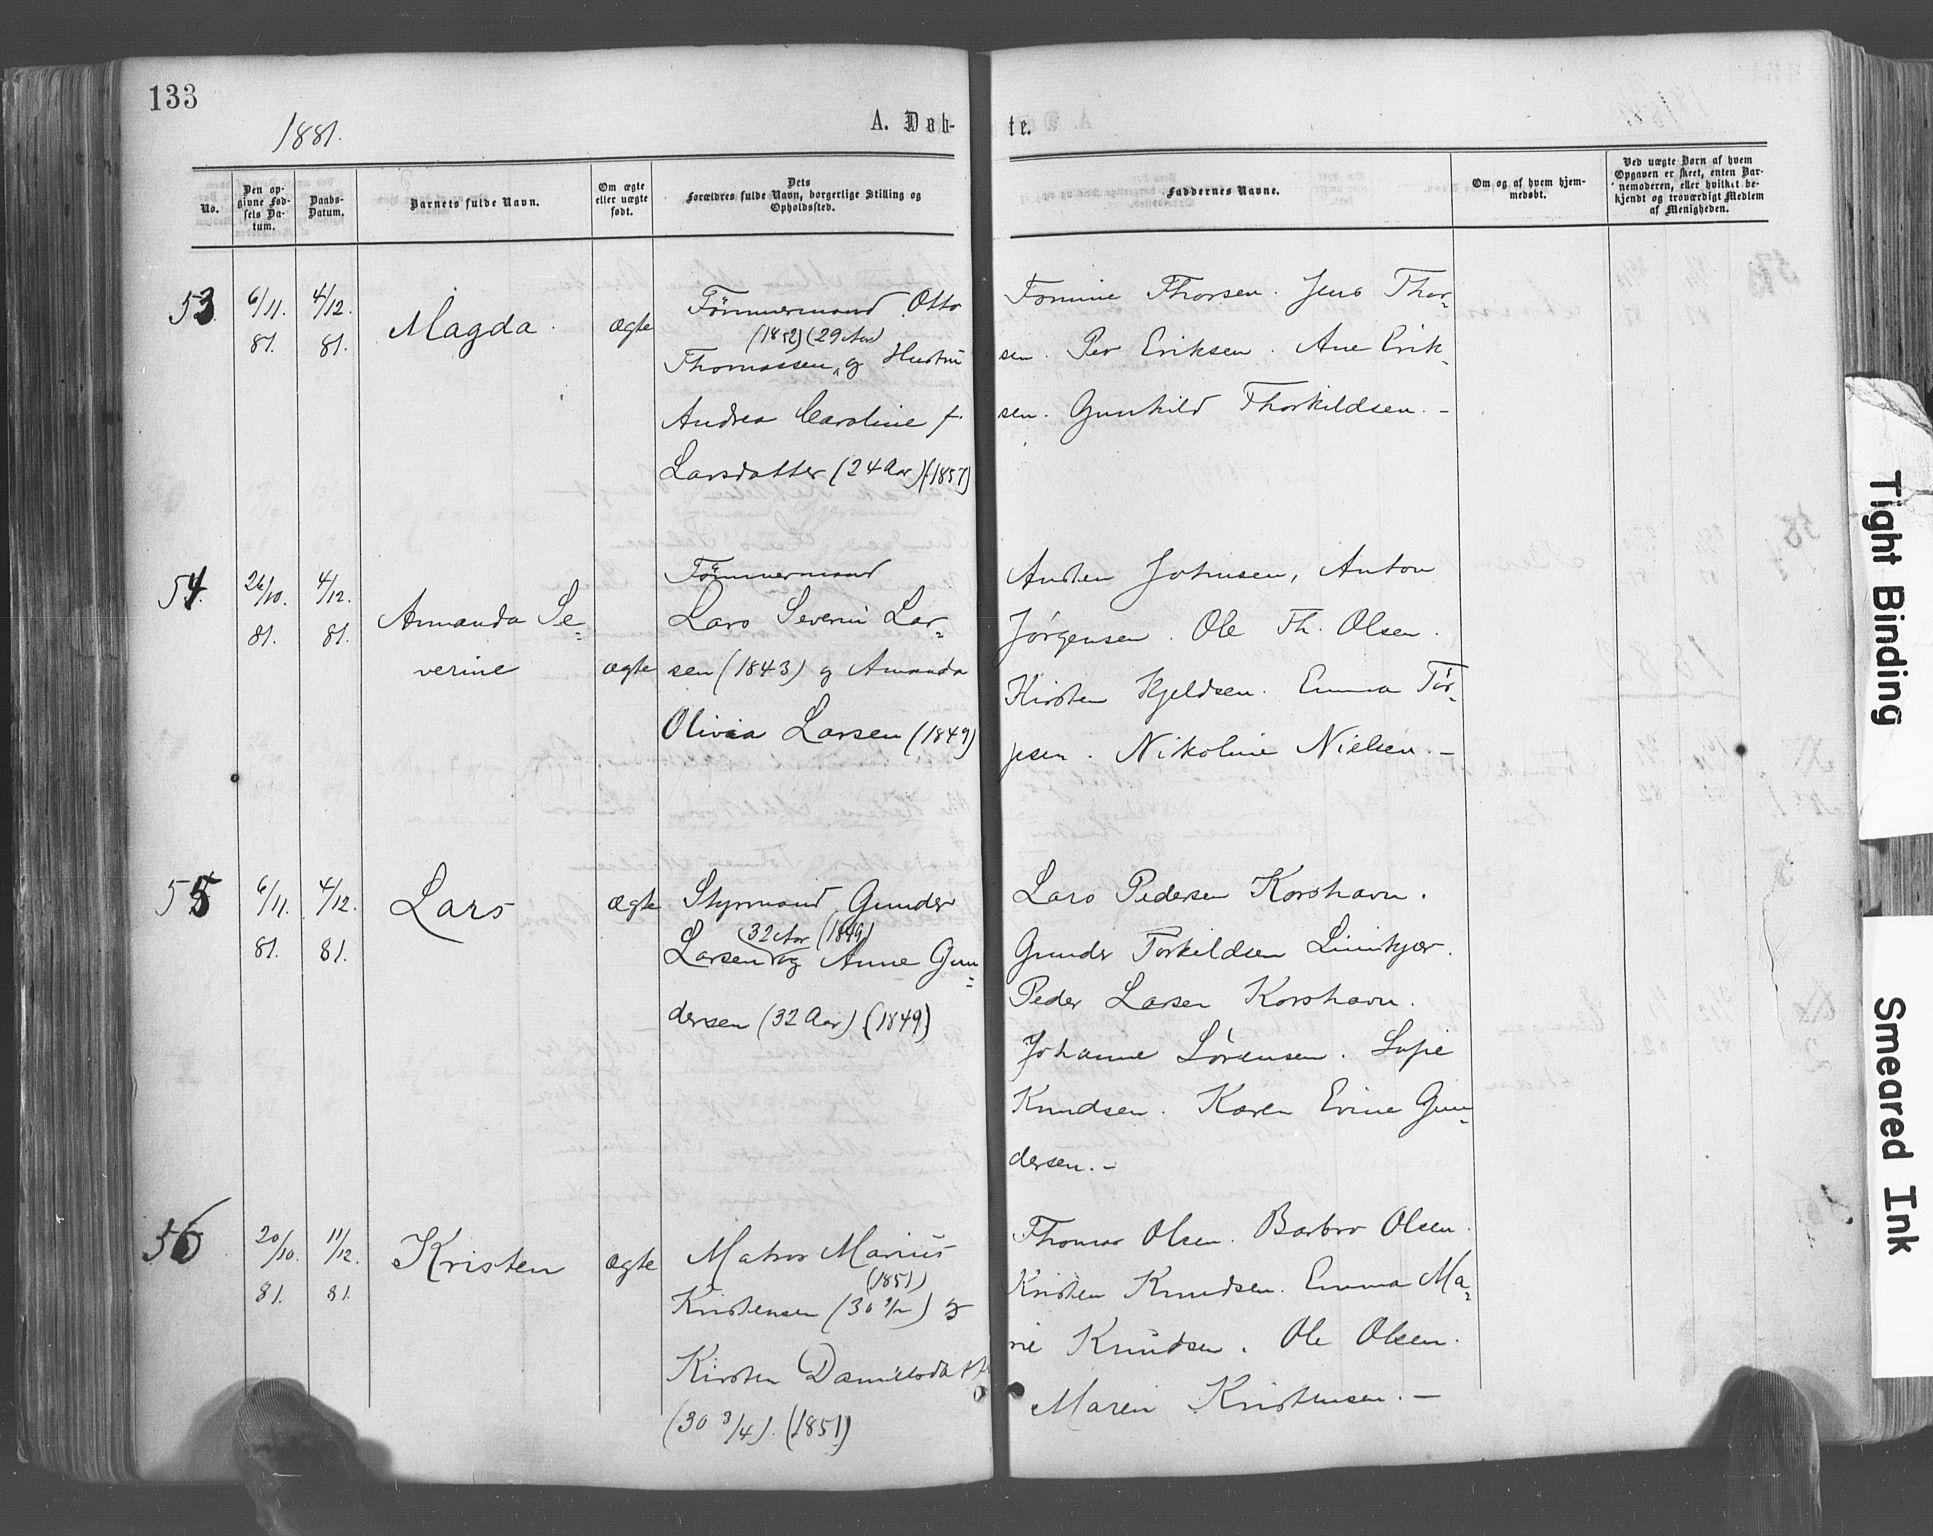 133
1881.
A. Døb-
te.
No.
Den op-
givne Fød-
sels Da-
tum.
Daabs-
Datum.
Barnets fulde Navn.
Om ægte
eller uægte
født.
Dets
Forældres fulde Navn, borgerlige Stilling og
Opholdssted.
Faddernes Navne.
Om og af hvem hjem-
medøbt.
Ved uægte Børn af hvem
Opgaven er skeet, enten Bar-
nemoderen, eller hvilket be-
kjendt og troværdigt Medlem
af Menigheden.
53
6/11.
81.
4/12.
81.
Magda.
ægte
Tømmermand Otto
(1852) (29 Aar)
Thomassen og Hustru
Andrea Caroline f.
Larsdatter (24 Aar) (1857)
Tomine Thorsen. Jens Thor-
sen. Per Eriksen. Ane Erik-
sen. Gunhild Thorkildsen. -
54.
26/10.
81.
4/12.
81.
Amanda Se-
verine
ægte
Tømmermand
Lars Severin Lar-
sen (1843) og Amanda
Olivia Larsen (1849)
Johnsen, Anton
Jørgensen. Ole Th. Olsen.
Kirsten Kjeldsen. Emma Tør-
jesen. Nikoline Nielsen. -
55
6/11.
81.
4/12.
81.
Lars
ægte
Styrmand Gunder
(32 Aar (1849)
Larsen og Anne Gun-
dersen (32 Aar) (1849)
Lars Pedersen Korshavn.
Gunder Torkildsen
Peder Larsen Korshavn.
Johanne Sørensen. Sofie
Knudsen. Karen Evine Gun-
dersen. -
56
20/10.
81.
11/12.
81.
Kristen
ægte
Matros Marius
(1851)
Kristensen (30 1/2) og
Kirsten Danielsdatter
(30 3/4). (1851)
Thomas Olsen. Barbro Olsen.
Kristen Knudsen. Emma Ma-
rie Knudsen. Ole Olsen.
Maren Kristensen. -
Tight Binding
Smeared Ink